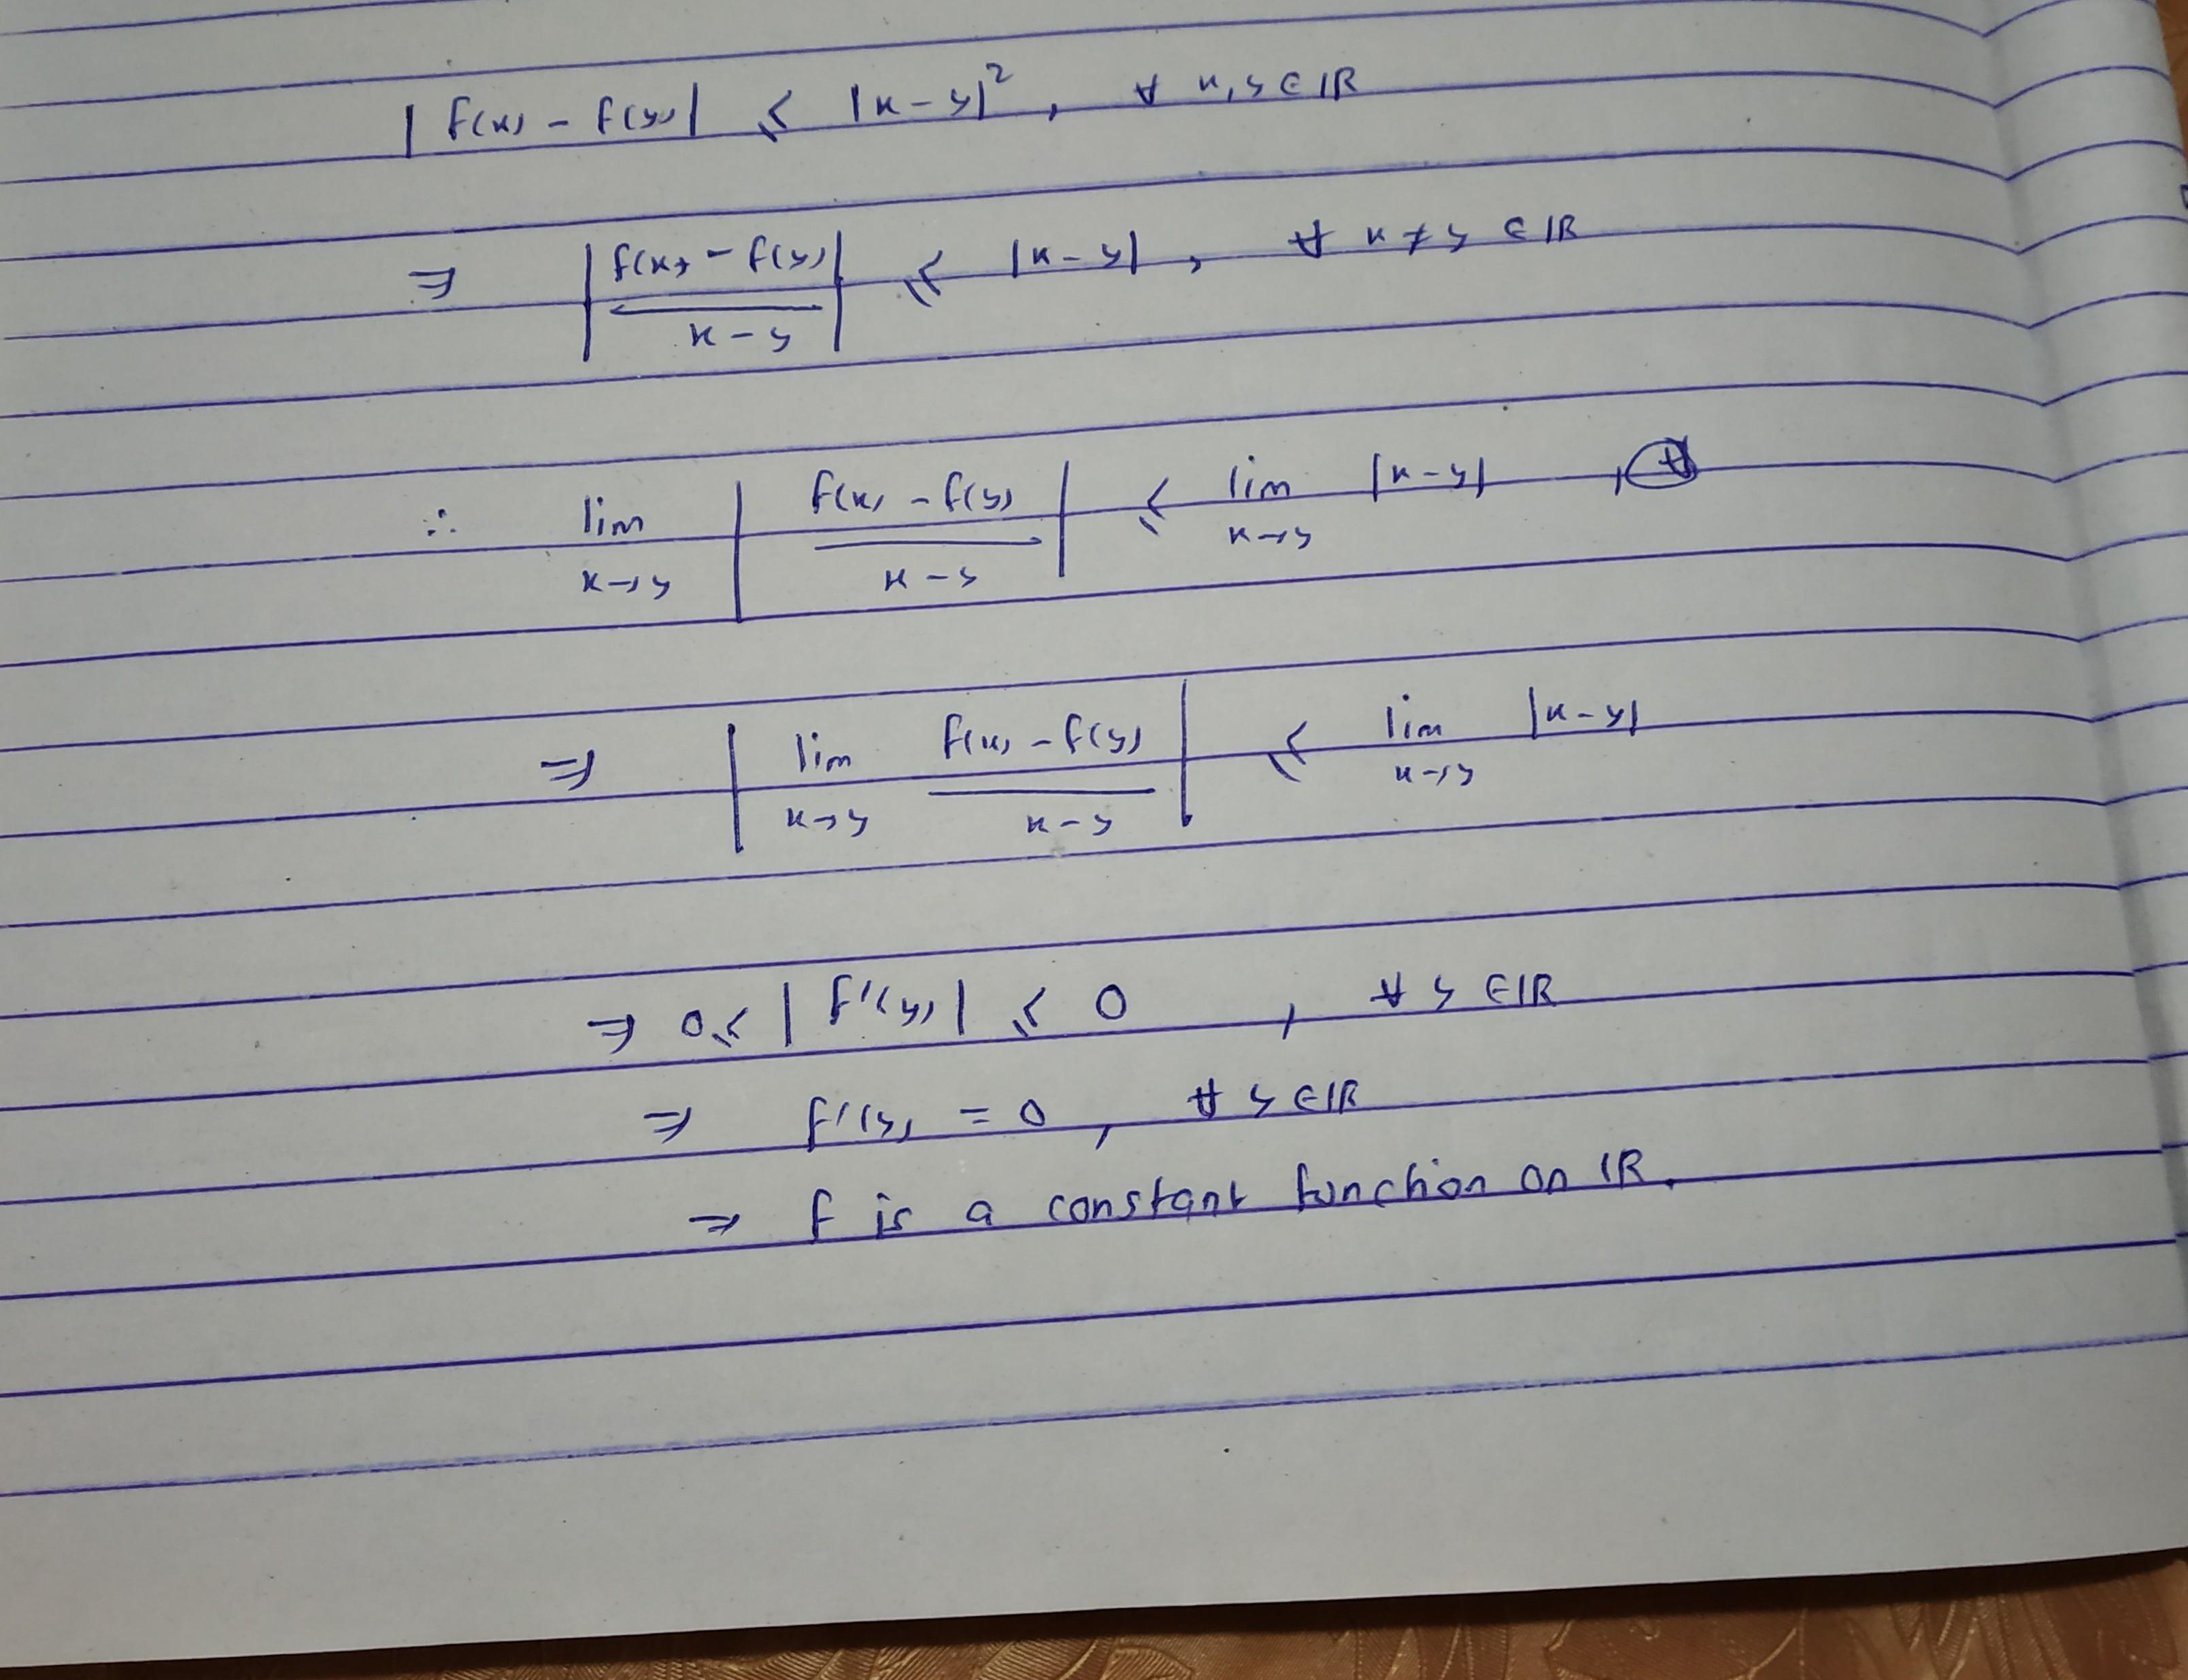 |f(x) - f(y)| ≤ |x-y|², ∀ x,y ∈ ℝ
⇒ |(f(x) - f(y))/(x-y)| ≤ |x-y|, ∀ x ≠ y ∈ ℝ
∴ lim_{x→y} |(f(x) - f(y))/(x-y)| ≤ lim_{x→y} |x-y|,
⇒ |lim_{x→y} (f(x) - f(y))/(x-y)| ≤ lim_{x→y} |x-y|
⇒ 0 ≤ |f'(y)| ≤ 0, ∀ y ∈ ℝ
⇒ f'(y) = 0, ∀ y ∈ ℝ
⇒ f is a constant function on ℝ.